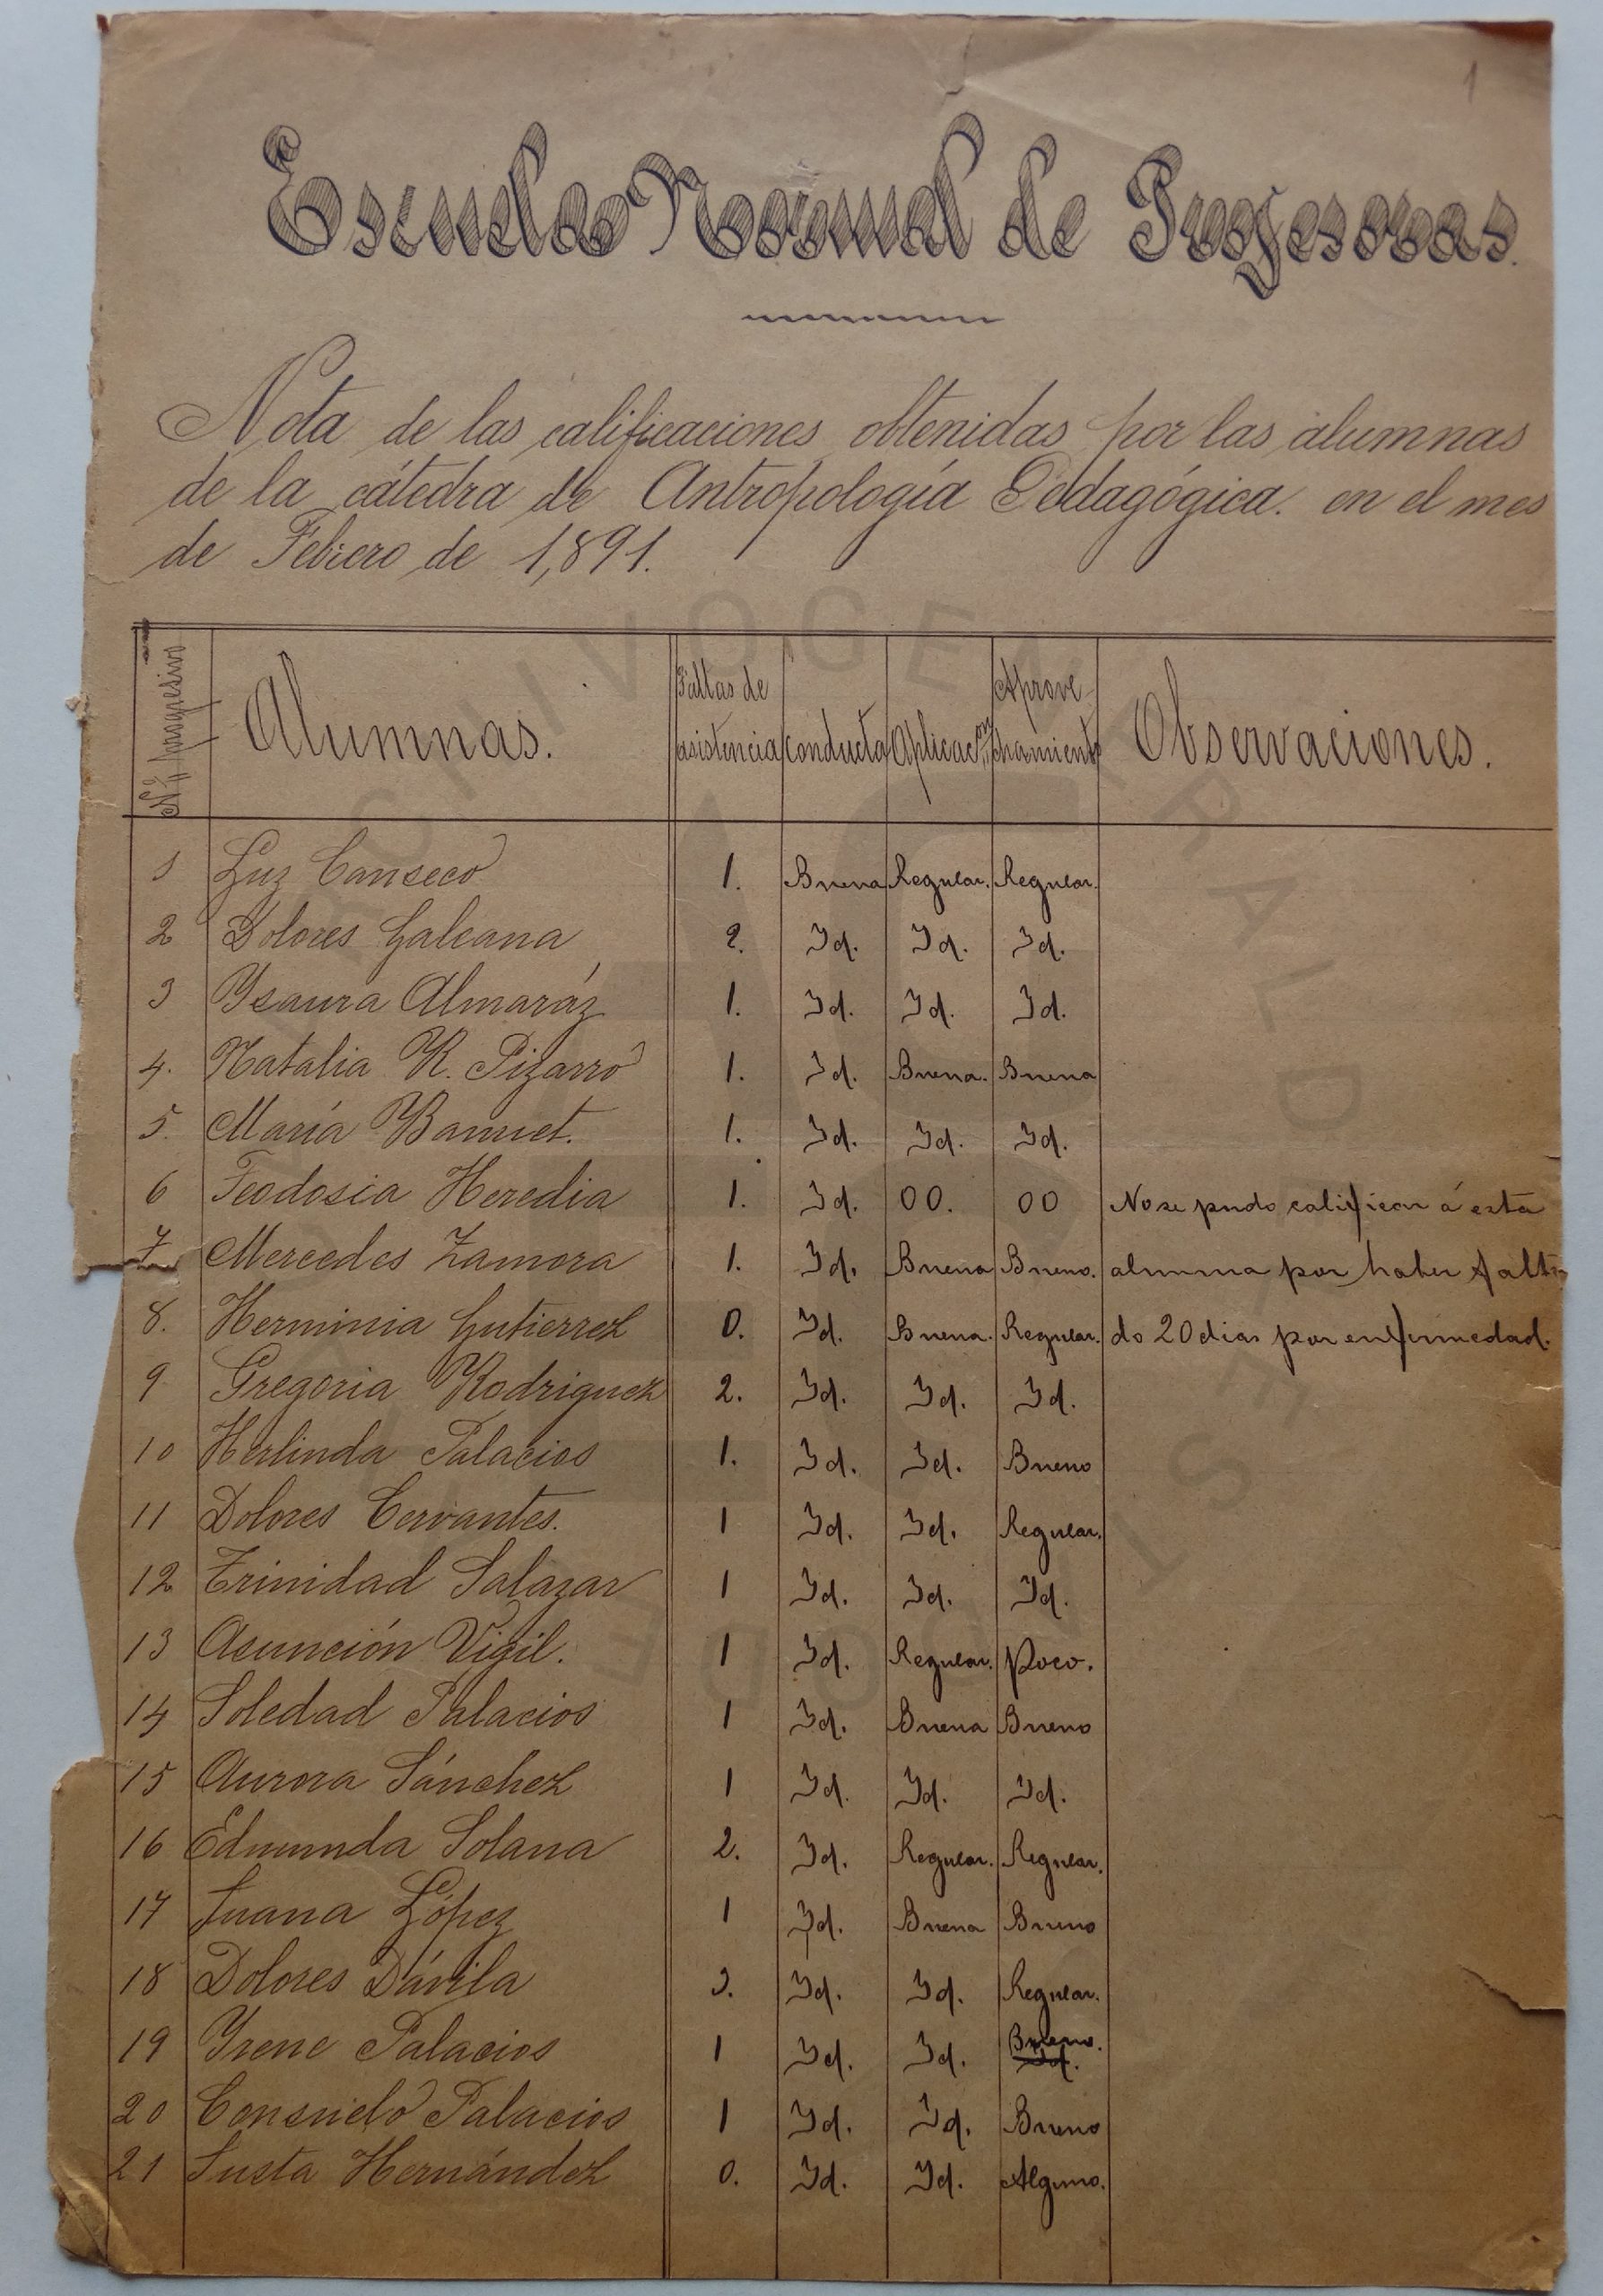 1
Escuela Normal de Profesoras.
Nota de las calificaciones obtenidas por las alumnas
de la cátedra de Antropología Pedagógica. en el mes
de Febrero de 1,891.
Nº progresivo Alumnas. Faltas de asistencia conducta Aplicacón Aprovechamiento Observaciones.
1 Luz Canseco 1. Buena Regular. Regular.
2 Dolores Galeana 2. Id. Id. Id.
3 Ysaura Almaráz 1. Id. Id. Id.
4. Natalia R. Pizarro 1. Id. Buena. Buena
5. María Banuet. 1. Id. Id. Id.
6 Teodosia Heredia 1. Id. 00. 00 No se pudo calificar á esta
7 Mercedes Zamora 1. Id. Buena Bueno. alumna por haber falta
8. Herminia Gutierrez 0. Id. Buena. Regular. do 20 dias por enfermedad.
9 Gregoria Rodriguez 2. Id. Id. Id.
10 Herlinda Palacios 1. Id. Id. Bueno
11 Dolores Cervantes. 1 Id. Id. Regular.
12 Trinidad Salazar 1 Id. Id. Id.
13 Asunción Vigil. 1 Id. Regular. Poco.
14 Soledad Palacios 1 Id. Buena Bueno
15 Aurora Sánchez 1 Id. Id. Id.
16 Edmunda Solana 2. Id. Regular. Regular.
17 Juana López 1 Id. Buena Bueno
18 Dolores Dávila 3. Id. Id. Regular.
19 Yrene Palacios 1 Id. Id. Bueno. Id.
20 Consuelo Palacios 1 Id. Id. Bueno
21 Justa Hernández 0. Id. Id. Alguno.